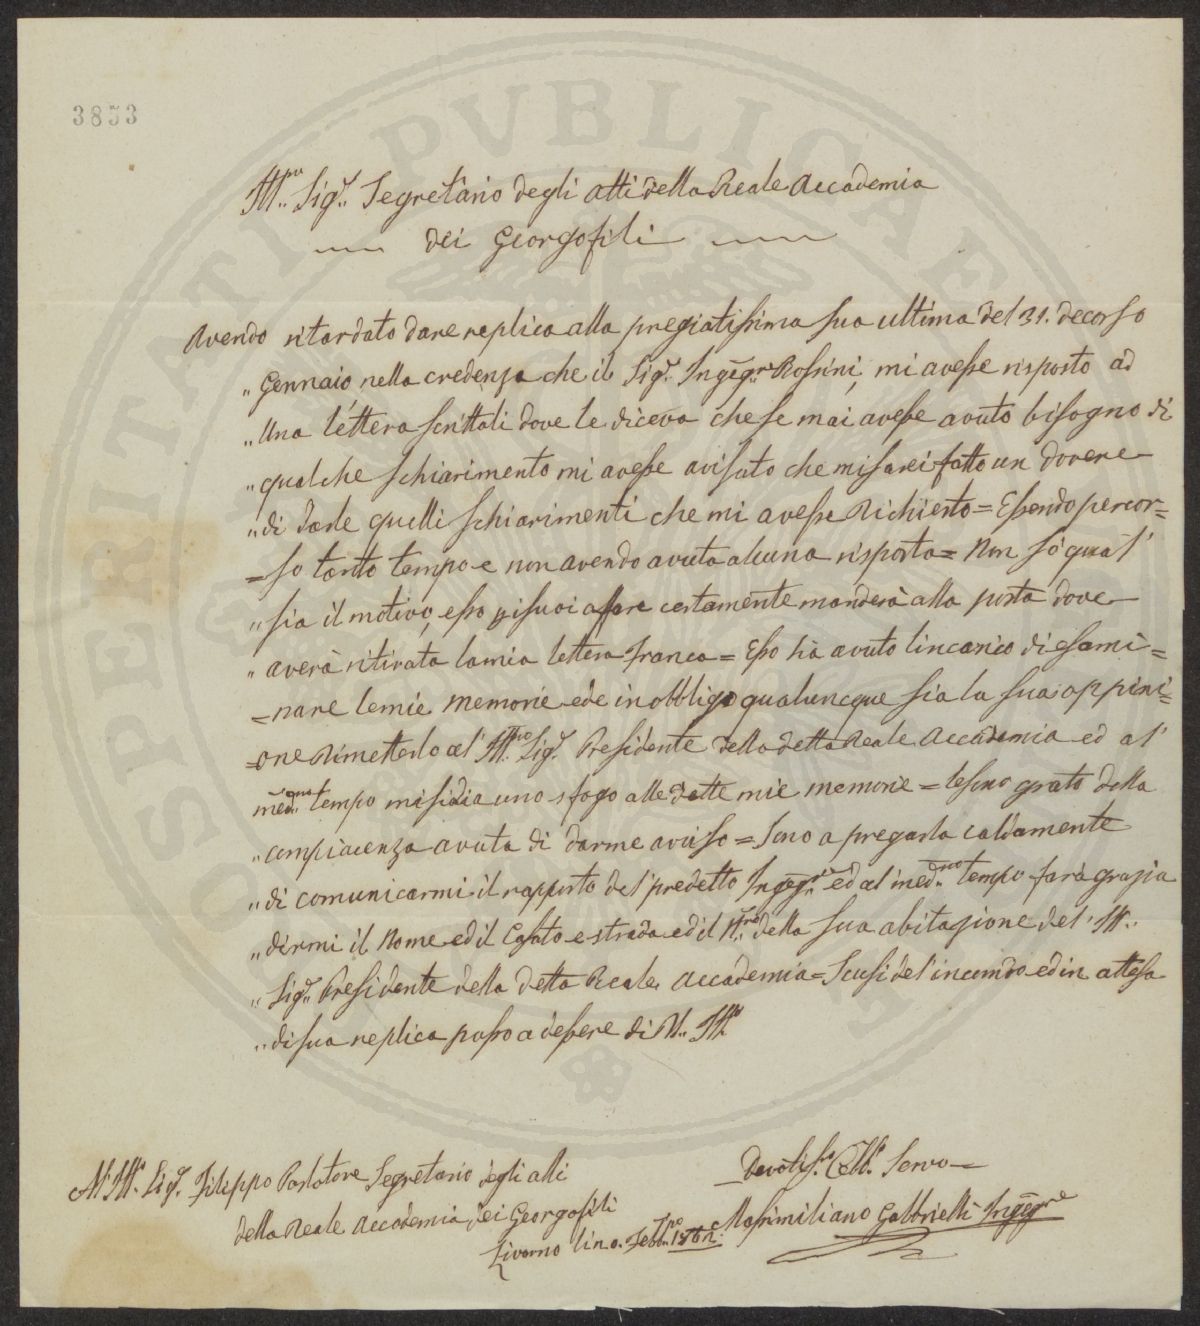 3853
Ill.mo Sig.r Segretario degli atti della Reale Accademia
dei Georgofili
Avendo ritardato dare replica alla pregiatissima sua ultima del 31. decorso
" Gennaio nella credenza che il Sig.r Ingeg.re Rossini, mi avesse risposto ad
" Una lettera scrittali dove le diceva che se mai avesse avuto bisogno di
" qualche schiarimento mi avesse avisato che mi sarei fatto un dovere
" di darle quelli schiarimenti che mi avesse Richiesto = Essendo percor=
=so tanto tempo e non avendo avuta alcuna risposta = Non sò qual'
" sia il motivo, esso p i suoi affare certamente manderà alla posta dove
" averà ritirata la mia lettera franca = Esso hà avuto lincarico di esami=
=nare le mie memorie ed e in obbligo qualuncque sia la sua oppini=
=one Rimetterlo al' Ill.mo Sig.r Presidente della detta Reale Accademia ed al'
med.mo tempo mi sidia uno sfogo alle dette mie memorie = le sono grato della
" compiacenza avuta di darme aviso = Sono a pregarla caldamente
" di comunicarmi il rapporto del' predetto Ingeg.re ed al med.mo tempo farà grazia
" dirmi il Nome ed il Casato e strada ed il N.ro della sua abitazione del' Ill.
" Sig.r Presidente della detta Reale Accademia = Scusi del' incomodo ed in attesa
" di sua replica passo a dessere di V. Ill.ma
Al' Ill.mo Sig.r Filippo Parlatore Segretario degli atti
della Reale Accademia dei Georgofili
Livorno li no.
Devotis.mo Obb.mo Servo
Massimiliano Gabbrielli Ingeg.re
SPERITATI PVBLICAE